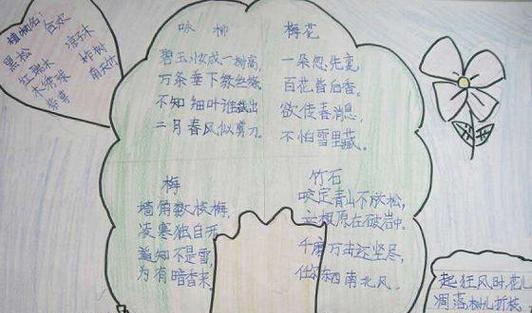 植物名
合欢
黑松
凉子木
红瑞木
柞树
木绣球
南天竹
紫荆
咏柳
碧玉妆成一树高
万条垂下绿丝绦
不知细叶谁裁出
二月春风似剪刀
梅花
一朵忽先变,
百花皆后香,
欲传春消息,
不怕雪里藏。
梅
墙角数枝梅,
凌寒独自开
遥知不是雪,
为有暗香来
竹石
咬定青山不放松,
立根原在破岩中。
千磨万击还坚尽,
任尔东西南北风
起狂风时花儿
凋落树儿折枝